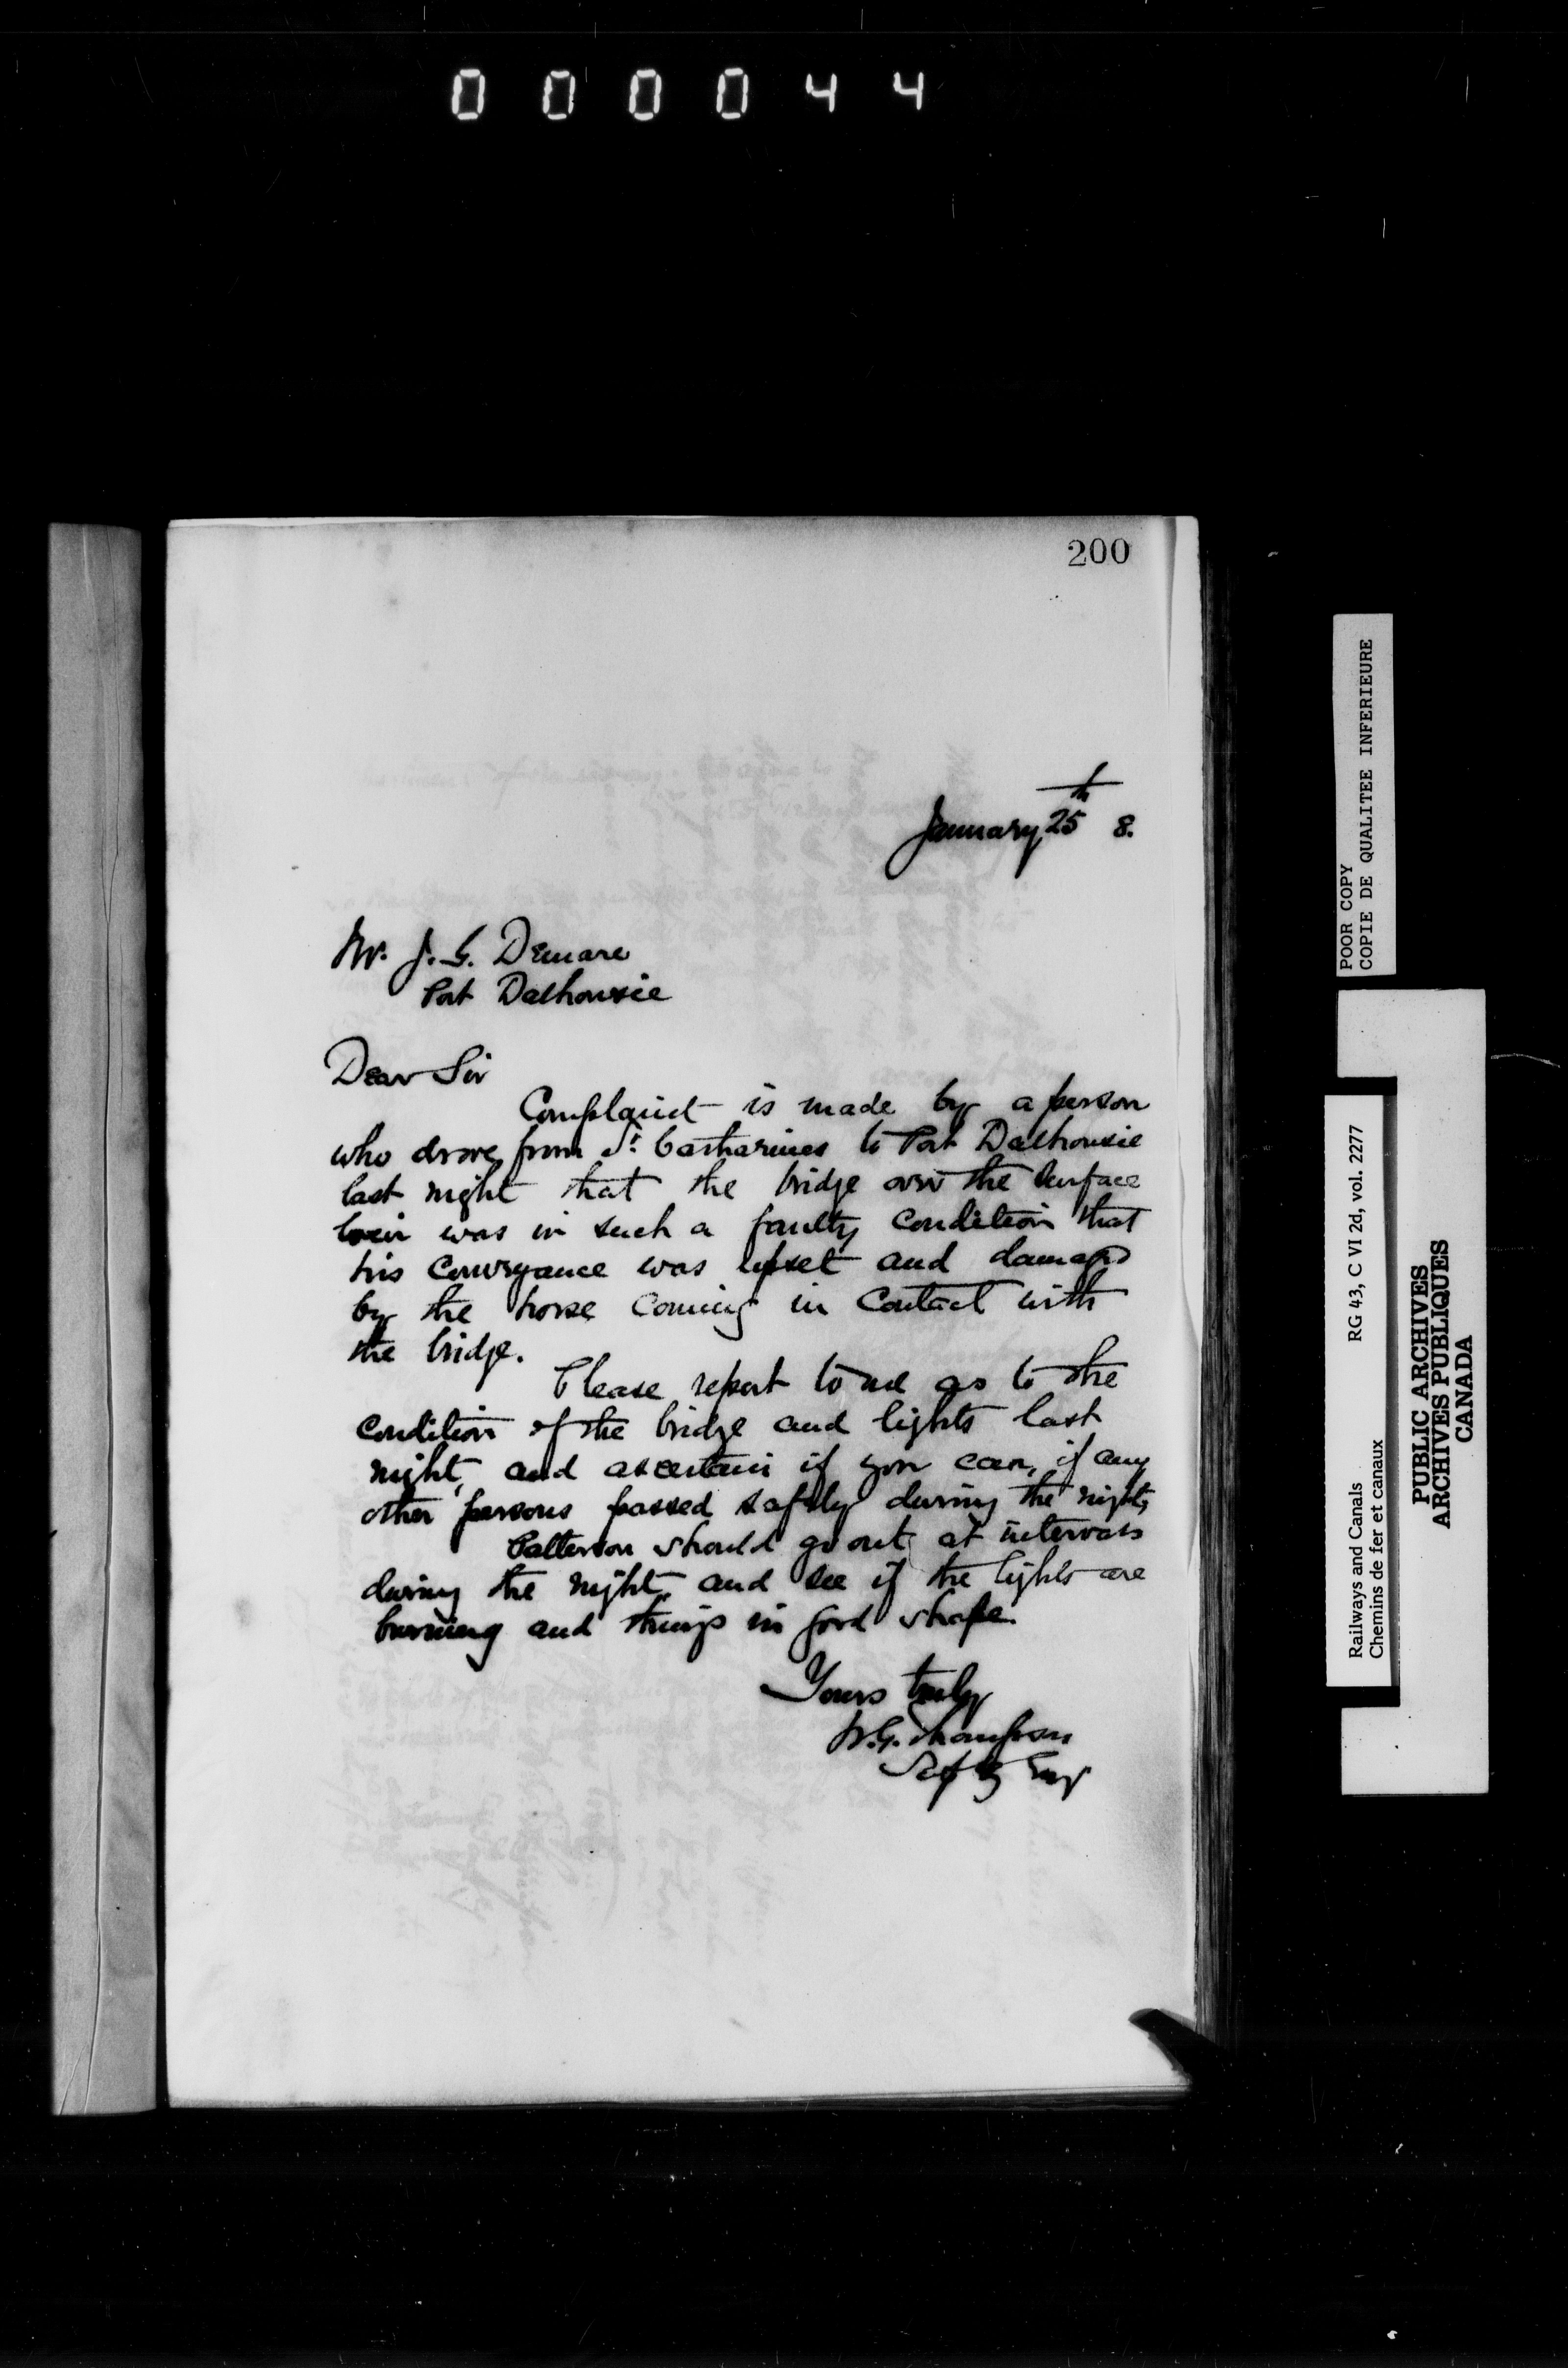 000044
200
January 25th 8.
Mr. J. G. Demare
Port Dalhousie
Dear Sir
Complaint is made by a person
who drove from St. Catharines to Port Dalhousie
last night that the bridge over the surface
weir was in such a faulty condition that
his conveyance was upset and damaged
by the horse coming in contact with
the bridge.
Please report to me as to the
condition of the bridge and lights last
night, and ascertain if you can, if any
other persons passed safely during the night,
Patterson should go out at intervals
during the night, and see if the lights are
burning and things in good shape.
Yours truly
W.G. Thompson
Supt Eng
POOR COPY
COPIE DE QUALITEE INFERIEURE
Railways and Canals RG 43, C VI 2d, vol. 2277
Chemins de fer et canaux
PUBLIC ARCHIVES
ARCHIVES PUBLIQUES
CANADA